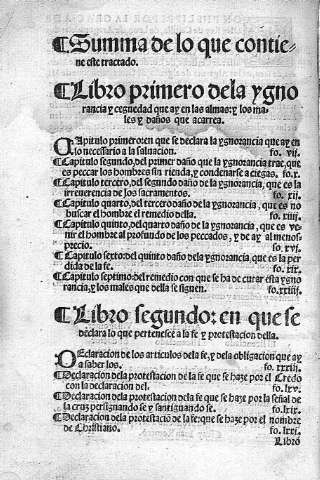 ¶Summa de lo que contie-
ne este tractado.
¶Libro primero dela ygno
rancia y ceguedad que ay en las almas: y los ma-
les y daños que acarrea.
CApitulo primero: en que se declara la ygnorancia que ay en
lo necessario a la saluacion. fo. vij.
¶Capitulo segundo, del primer daño que la ygnorancia trae, que
es peccar los hombres sin rienda, y condenarse a ciegas. fo. x.
¶Capitulo tercero, del segundo daño dela ygnorancia, que es la
irreuerencia de los sacramentos. fo. xij.
¶Capitulo quarto, del tercero daño de la ygnorancia, que es no
buscar el hombre el remedio della. fo. xiiij.
¶Capitulo quinto, del quarto daño de la ygnorancia, que es ve-
nir el hombre al profundo de los peccados, y de ay al menos-
precio. fo. xvj.
¶Capitulo sexto: del quinto daño dela ygnorancia, que es la per
dida de la fe. fo. xix.
¶Capitulo septimo, del remedio con que se ha de curar esta ygno
rancia, y los males que della se siguen. fo. xxiiij.
¶Libro segundo: en que se
declara lo que pertenesce a la fe y protestacion della.
DEclaracion de los articulos dela fe, y dela obligacion que ay
a saber los. fo. xxxiij.
¶Declaracion dela protestacion de la fe que se haze por el Credo
con la declaracion del. fo. lxv.
¶Declaracion dela protestacion dela fe que se haze por la señal de
la cruz persignando se y santiguando se. fo. lxix.
¶Declaracion de la protestacion de la fe: que se haze por el nombre
de Christiano. fo. lxxj.
Libro